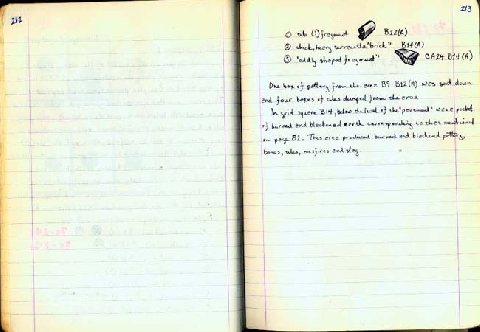 212
213
① tile (?) fragment B12(A)
② thick, heavy terracotta "brick" B14(A)
③ "oddly shaped fragment" CA24 B14(A)
One box of pottery from the area B9 B12(A) was sent down
and four boxes of tiles dumped from the area.
In grid square B14, below the level of the "pavement" were pockets
of burned and blackened earth corresponding to that mentioned
on page 81. This area produced burned and blackened pottery,
bones, tiles, and slag.